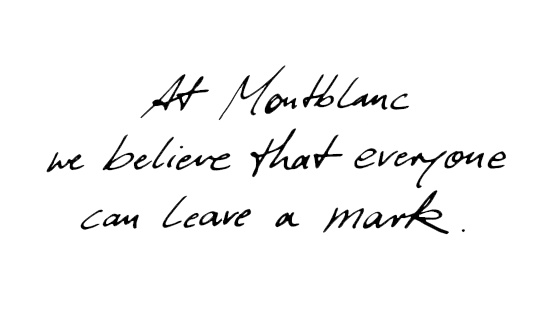 At Montblanc
we believe that everyone
can leave a mark.